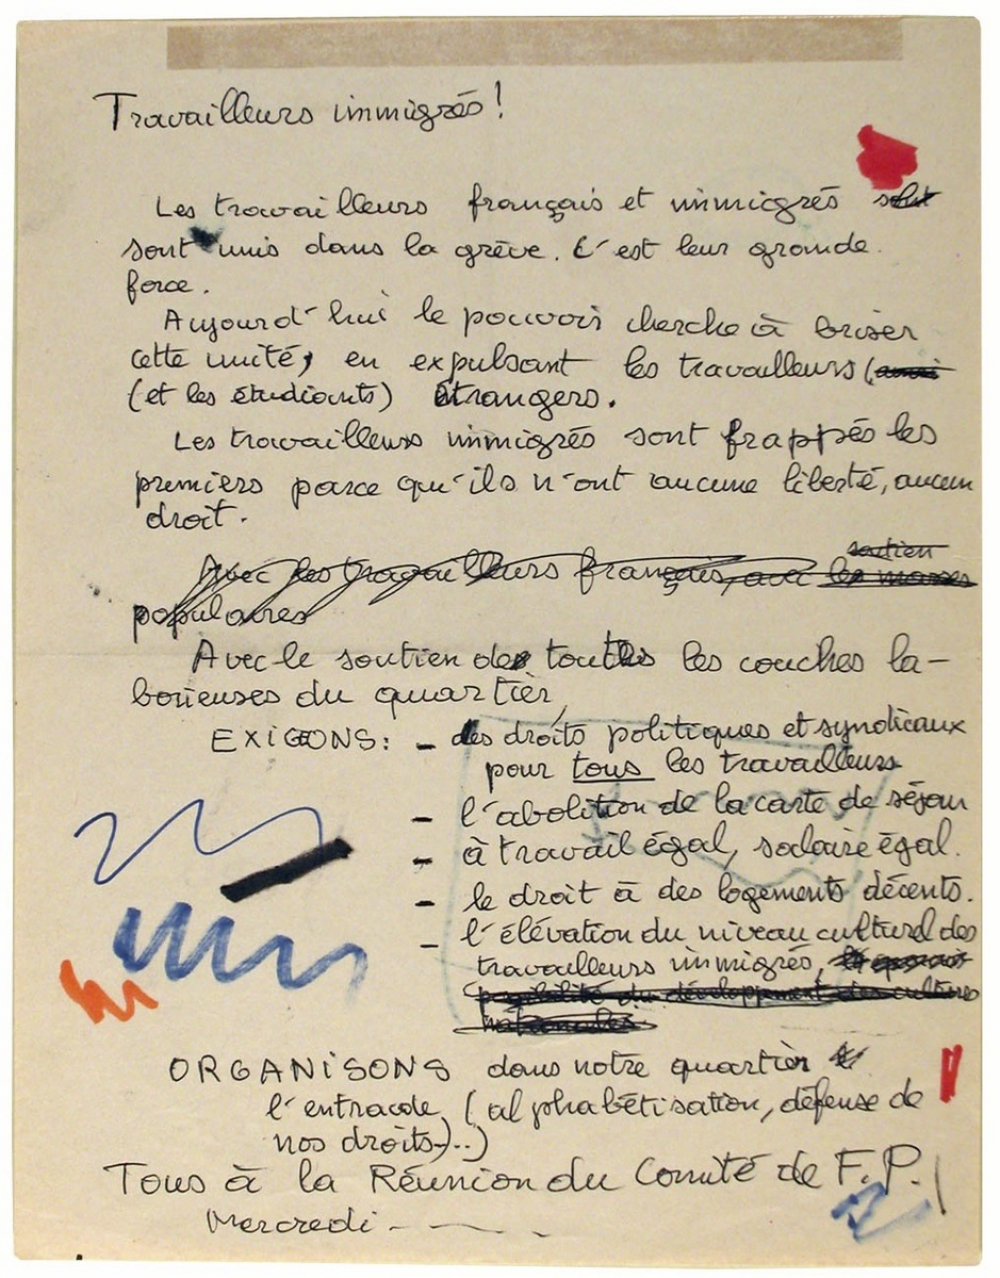 Travailleurs immigrés !
Les travailleurs français et immigrés
sont unis dans la grève. C'est leur grande
force.
Aujourd'hui le pouvoir cherche à briser
cette unité, en expulsant les travailleurs (
(et les étudiants) étrangers.
Les travailleurs immigrés sont frappés les
premiers parce qu'ils n'ont aucune liberté, aucun
droit.
soutien
Avec les travailleurs français, avec les masses
populaires
Avec le soutien de toutes les couches la-
borieuses du quartier,
EXIGONS: - des droits politiques et syndicaux
pour tous les travailleurs
- l'abolition de la carte de séjour
- à travail égal, salaire égal.
- le droit à des logements décents.
- l'élévation du niveau culturel des
travailleurs immigrés,
possibilité du développement des cultures
nationales.
ORGANISONS dans notre quartier
l'entraide (alphabétisation, défense de
nos droits...)
Tous à la Réunion du Comité de F.P.
Mercredi - —